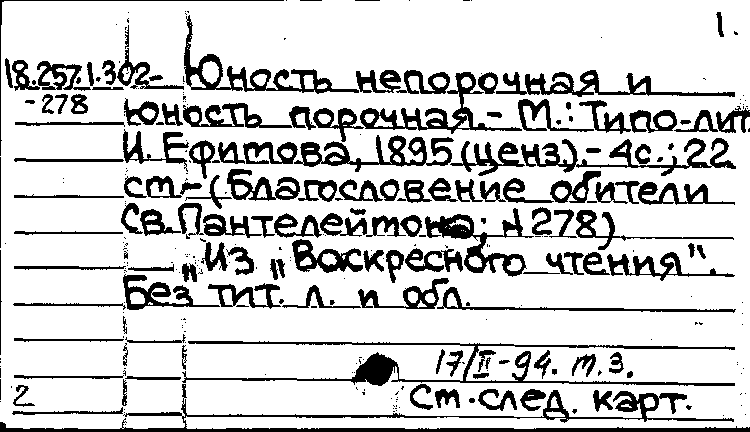 1.
18.257.1.302- Юность непорочная и
-278 юность порочная.- М.: Типо-лит.
И. Ефимова, 1895 (ценз.).- 4с.; 22
ст.- (Благословение обители
Св. Пантелеймона; № 278)
„Из „Воскресного чтения".
Без тит. л. и обл.
17/II-94. т.з.
2 См. след. карт.